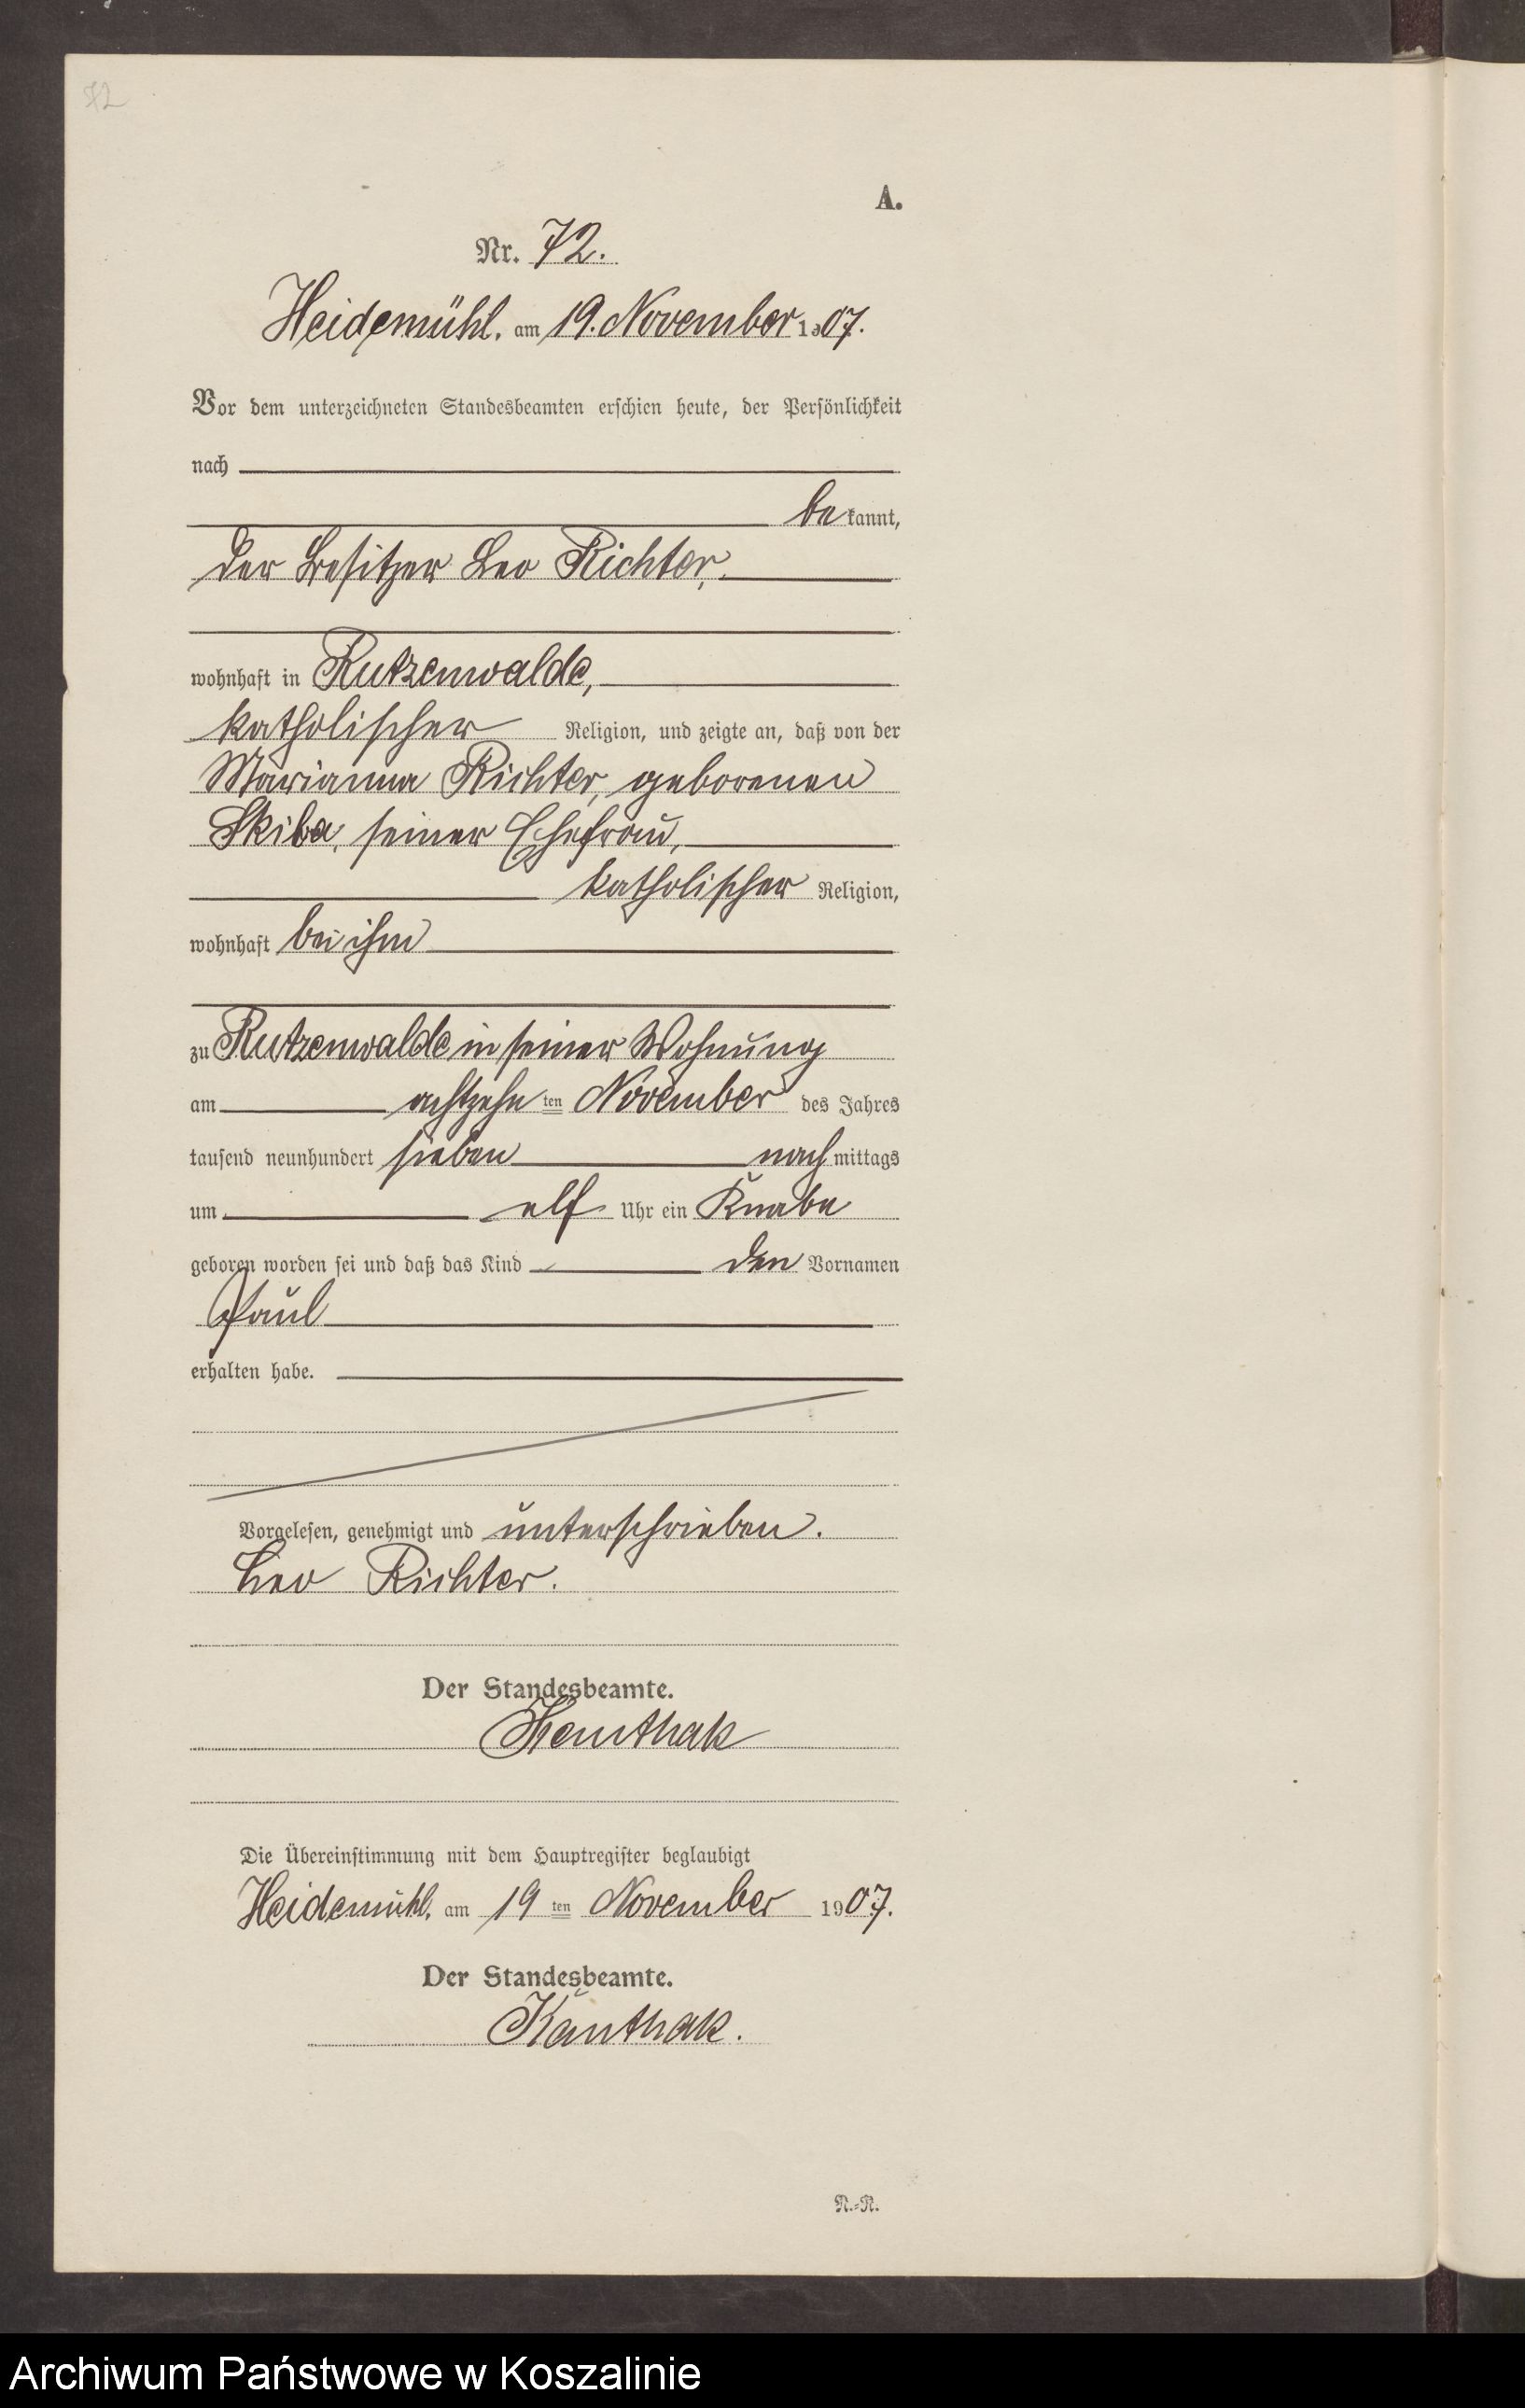 72
A.
Nr. 72.
Heidemühl, am 19. November 1907.
Vor dem unterzeichneten Standesbeamten erschien heute, der Persönlichkeit
nach
bekannt,
der Besitzer Leo Richter,
wohnhaft in Rutzenwalde,
katholischer Religion, und zeigte an, daß von der
Marianna Richter, geborenen
Skiba, seiner Ehefrau,
katholischer Religion,
wohnhaft bei ihm
zu Rutzenwalde in seiner Wohnung
am achtzehnten November des Jahres
tausend neunhundert sieben nachmittags
um elf Uhr ein Knabe
geboren worden sei und daß das Kind den Vornamen
Paul
erhalten habe.
Vorgelesen, genehmigt und unterschrieben.
Leo Richter.
Der Standesbeamte.
Kauthak
Die Übereinstimmung mit dem Hauptregister beglaubigt
Heidemühl, am 19ten November 1907.
Der Standesbeamte.
Kauthak.
N.-R.
Archiwum Państwowe w Koszalinie